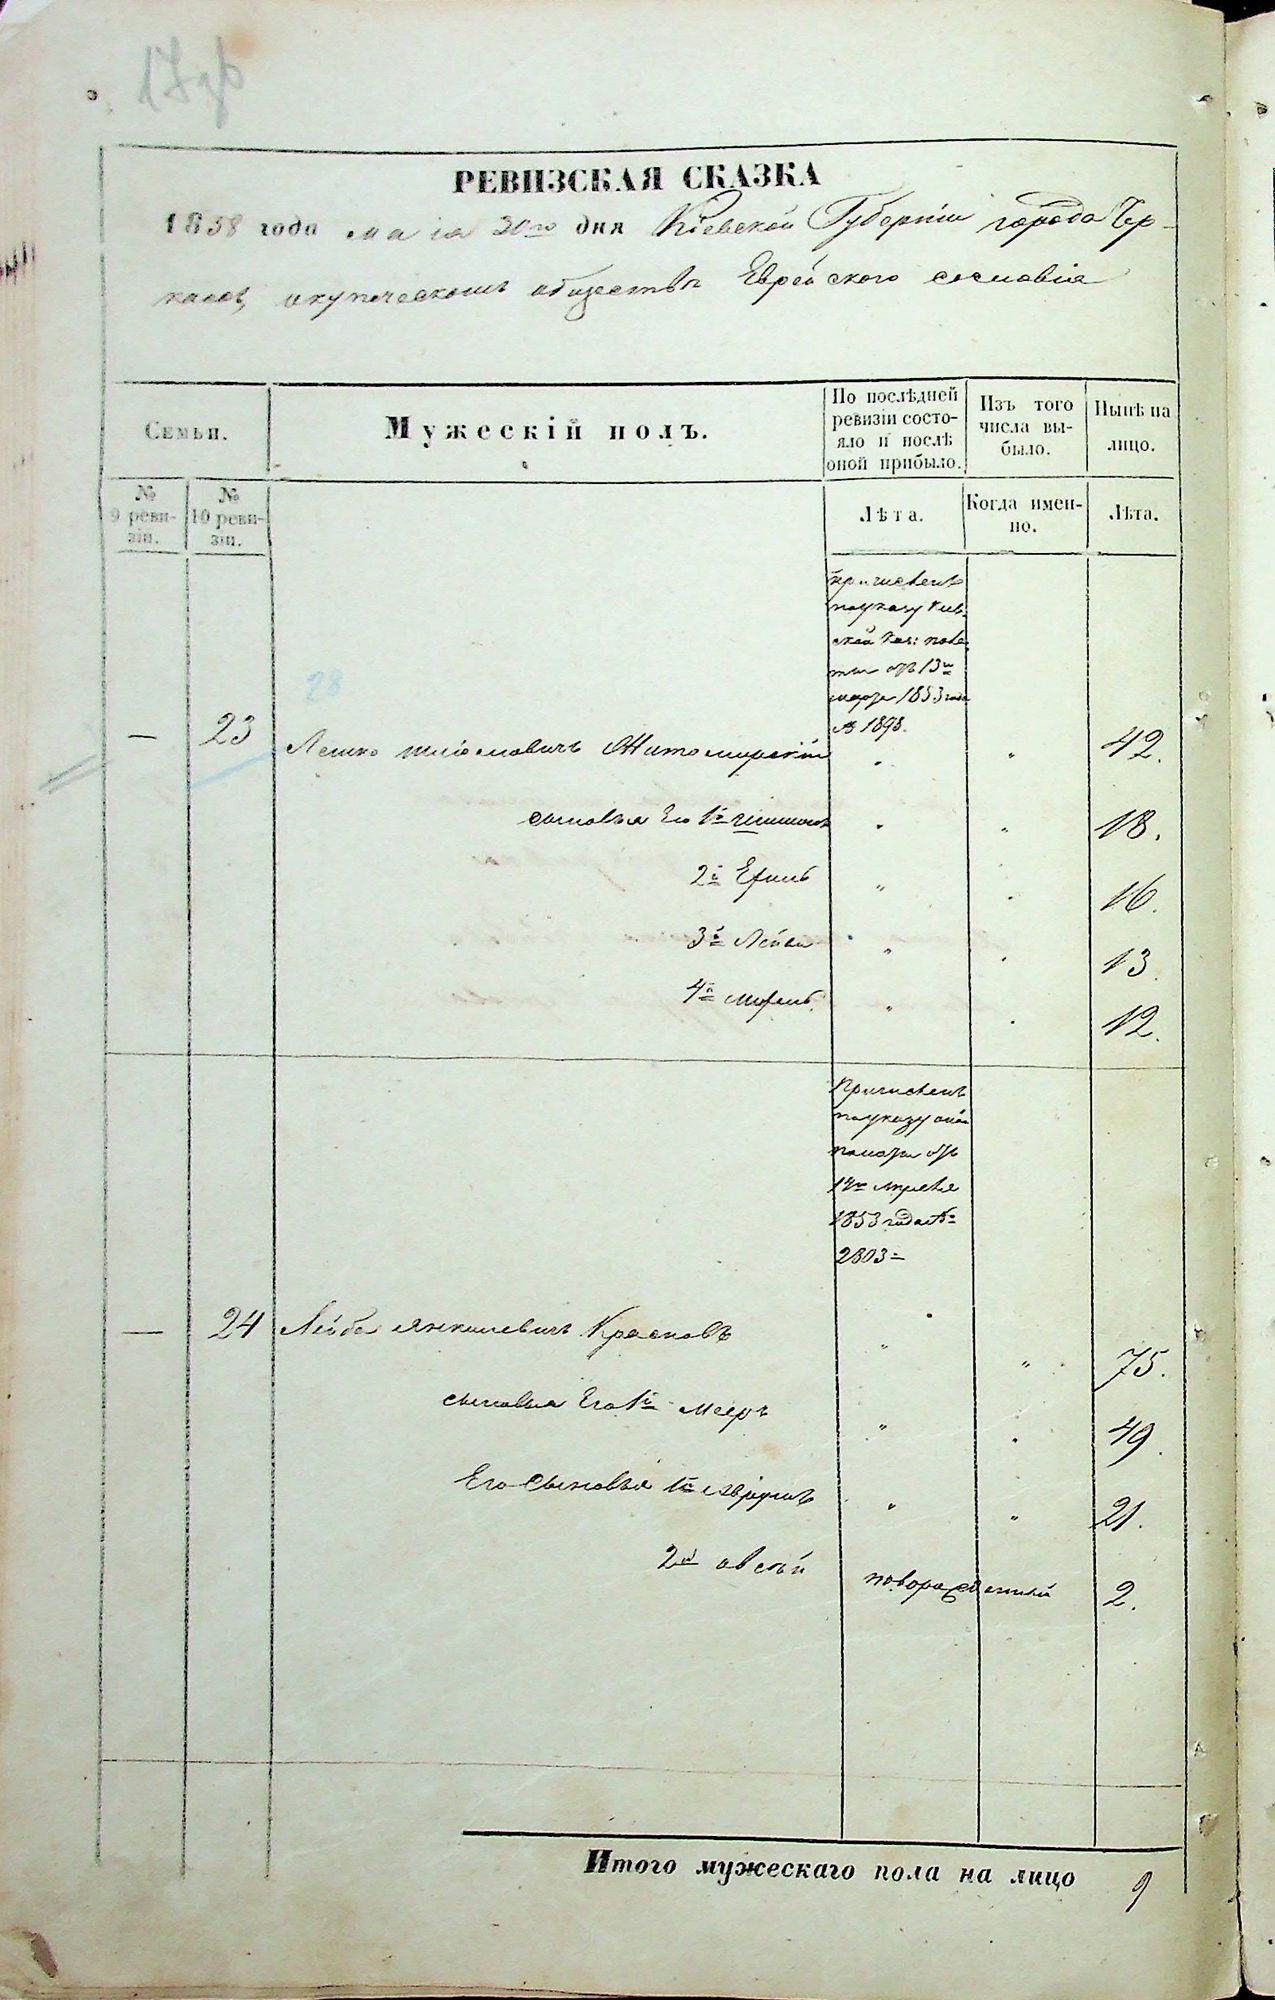 РЕВИЗСКАЯ СКАЗКА
1858 года мая 30го дня Кіевской Губерніи города Чер-
касъ, о купеческомъ обществѣ Еврейского сословія
Семьи.
Мужескій полъ.
По послѣдней ревизіи состо-
яло и послѣ оной прибыло.
Изъ того числа вы-
было.
Нынѣ на лицо.
№ 9 реви-
зіи.
№ 10 реви-
зіи.
Лѣта.
Когда имен-
но.
Лѣта.
28
причисленъ
по указу Кіев-
ской Каз: пала
ты отъ 13го
марта 1853 года
№ 1898.
— 23 Житомирскій " " 42.
сыновья Его 1й " " 18.
2й " " 16.
3й Лейба " " 13.
4й " " 12.
Причисленъ
по указу оной
палаты отъ
апреля
1853 года №
2803
— 24 Лейба Янкилевичъ Красновъ " " 75.
сыновья Его 1й Мееръ " " 49.
Его сыновья 1й " " 21.
2й Овсѣй новорожденный 2.
Итого мужескаго пола на лицо 9